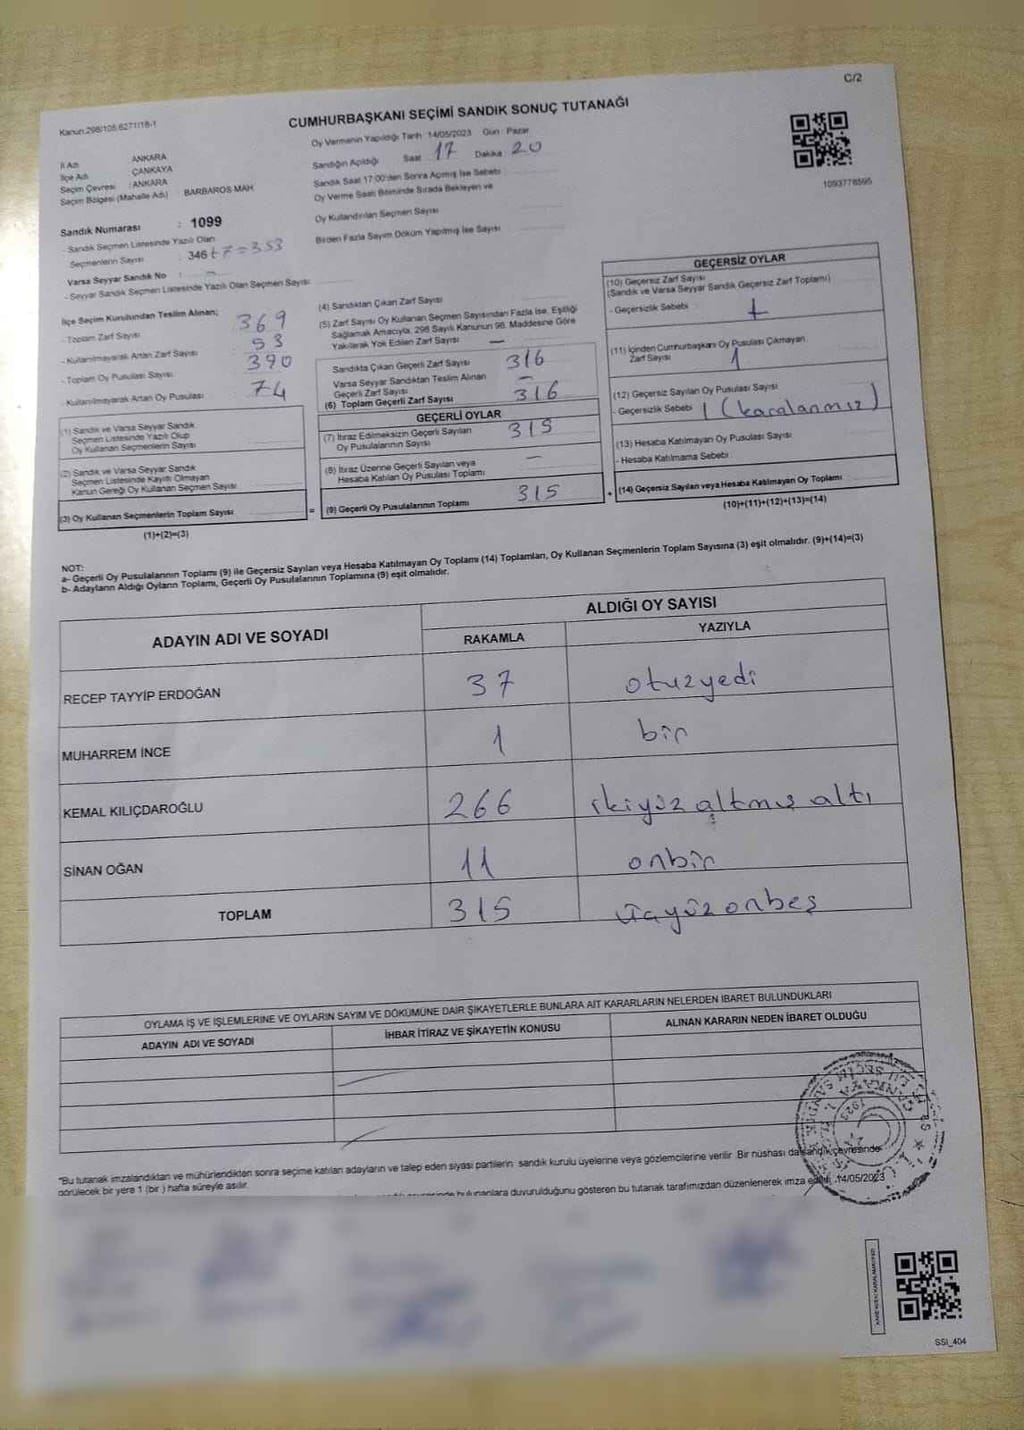 C/2
Kanun:298/105,6271/18-1
CUMHURBAŞKANI SEÇİMİ SANDIK SONUÇ TUTANAĞI
Oy Vermenin Yapıldığı Tarih : 14/05/2023 Gün : Pazar
İl Adı ANKARA
İlçe Adı ÇANKAYA
Seçim Çevresi : ANKARA
Seçim Bölgesi (Mahalle Adı) BARBAROS MAH
Sandığın Açıldığı Saat 17 Dakika 20
Sandık Saat 17:00'den Sonra Açılmış İse Sebebi
Oy Verme Saati Bitiminde Sırada Bekleyen ve
Oy Kullandırılan Seçmen Sayısı
Birden Fazla Sayım Döküm Yapılmış İse Sayısı
1093778595
Sandık Numarası : 1099
- Sandık Seçmen Listesinde Yazılı Olan
Seçmenlerin Sayısı : 346 + 7 = 353
Varsa Seyyar Sandık No : -
- Seyyar Sandık Seçmen Listesinde Yazılı Olan Seçmen Sayısı
İlçe Seçim Kurulundan Teslim Alınan;
- Toplam Zarf Sayısı 369
- Kullanılmayarak Artan Zarf Sayısı 53
- Toplam Oy Pusulası Sayısı 390
- Kullanılmayarak Artan Oy Pusulası 74
(1) Sandık ve Varsa Seyyar Sandık
Seçmen Listesinde Yazılı Olup
Oy Kullanan Seçmenlerin Sayısı
(2) Sandık ve Varsa Seyyar Sandık
Seçmen Listesinde Kayıtlı Olmayan
Kanun Gereği Oy Kullanan Seçmen Sayısı
(3) Oy Kullanan Seçmenlerin Toplam Sayısı
(1)+(2)=(3)
(4) Sandıktan Çıkan Zarf Sayısı
(5) Zarf Sayısı Oy Kullanan Seçmen Sayısından Fazla İse, Eşitliği
Sağlamak Amacıyla, 298 Sayılı Kanunun 98. Maddesine Göre
Yakılarak Yok Edilen Zarf Sayısı -
Sandıkta Çıkan Geçerli Zarf Sayısı 316
Varsa Seyyar Sandıktan Teslim Alınan
Geçerli Zarf Sayısı -
(6) Toplam Geçerli Zarf Sayısı 316
GEÇERLİ OYLAR
(7) İtiraz Edilmeksizin Geçerli Sayılan
Oy Pusulalarının Sayısı 315
(8) İtiraz Üzerine Geçerli Sayılan veya
Hesaba Katılan Oy Pusulası Toplamı -
= (9) Geçerli Oy Pusulalarının Toplamı 315
GEÇERSİZ OYLAR
(10) Geçersiz Zarf Sayısı
(Sandık ve Varsa Seyyar Sandık Geçersiz Zarf Toplamı)
- Geçersizlik Sebebi
(11) İçinden Cumhurbaşkanı Oy Pusulası Çıkmayan
Zarf Sayısı 1
(12) Geçersiz Sayılan Oy Pusulası Sayısı
- Geçersizlik Sebebi 1 (karalanmız)
(13) Hesaba Katılmayan Oy Pusulası Sayısı
- Hesaba Katılmama Sebebi
+ (14) Geçersiz Sayılan veya Hesaba Katılmayan Oy Toplamı
(10)+(11)+(12)+(13)=(14)
NOT:
a- Geçerli Oy Pusulalarının Toplamı (9) ile Geçersiz Sayılan veya Hesaba Katılmayan Oy Toplamı (14) Toplamları, Oy Kullanan Seçmenlerin Toplam Sayısına (3) eşit olmalıdır. (9)+(14)=(3)
b- Adayların Aldığı Oyların Toplamı, Geçerli Oy Pusulalarının Toplamına (9) eşit olmalıdır.
ADAYIN ADI VE SOYADI ALDIĞI OY SAYISI
RAKAMLA YAZIYLA
RECEP TAYYİP ERDOĞAN 37 otuzyedi
MUHARREM İNCE 1 bir
KEMAL KILIÇDAROĞLU 266 ikiyüz altmış altı
SİNAN OĞAN 11 onbir
TOPLAM 315 üçyüz onbeş
OYLAMA İŞ VE İŞLEMLERİNE VE OYLARIN SAYIM VE DÖKÜMÜNE DAİR ŞİKAYETLERLE BUNLARA AİT KARARLARIN NELERDEN İBARET BULUNDUKLARI
ADAYIN ADI VE SOYADI İHBAR İTİRAZ VE ŞİKAYETİN KONUSU ALINAN KARARIN NEDEN İBARET OLDUĞU
"Bu tutanak imzalandıktan ve mühürlendikten sonra seçime katılan adayların ve talep eden siyasi partilerin sandık kurulu üyelerine veya gözlemcilerine verilir. Bir nüshası da sandık çevresinde
görülecek bir yere 1 (bir) hafta süreyle asılır.
bulunanlara duyurulduğunu gösteren bu tutanak tarafımızdan düzenlenerek imza edildi. 14/05/2023
SSI_404